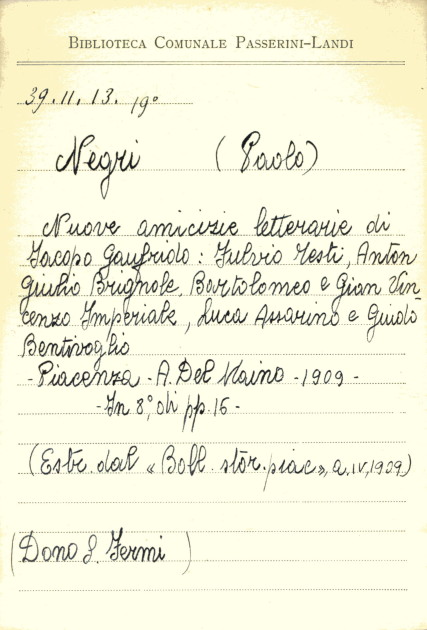 BIBLIOTECA COMUNALE PASSERINI-LANDI
39.11.13. 19°
Negri (Paolo)
Nuove amicizie letterarie di
Jacopo Gaufrido: Fulvio Testi, Anton
Giulio Brignole, Bartolomeo e Gian Vin
cenzo Imperiale, Luca Assarino e Guido
Bentivoglio
- Piacenza - A. Del Maino - 1909 -
- In 8°, di pp. 16 -
(Estr. dal « Boll. stor. piac », a. IV, 1909)
(Dono S. Fermi)